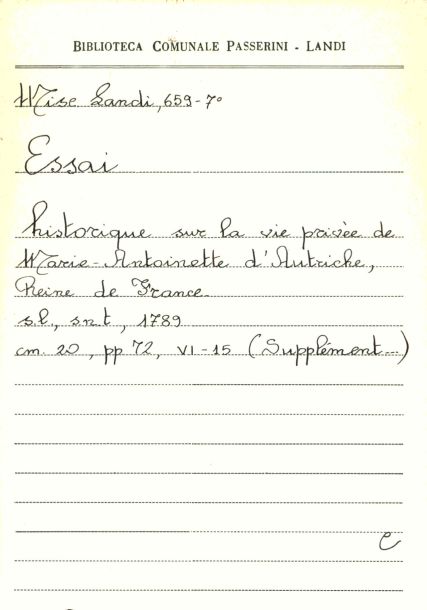 BIBLIOTECA COMUNALE PASSERINI - LANDI
Mise Landi, 659-7°
Essai
historique sur la vie privée de
Marie-Antoinette d'Autriche,
Reine de France
s.l., s.n.t, 1789
cm. 20, pp 72, VI-15 (Supplément...)
e